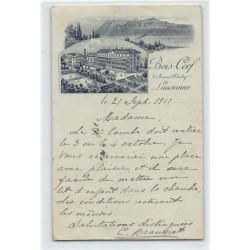 Bois-Cerf
Avenue d'Ouchy
Lausanne
le 21 Sept. 1911
Madame,
Le Dr Combe doit rentrer
le 3 ou le 4 octobre. Je
vous réserverai une place
avec plaisir, et il sera
facile de mettre un
lit d'enfant dans la chambre,
Les conditions resteront
les mêmes.
Salutations distinguées